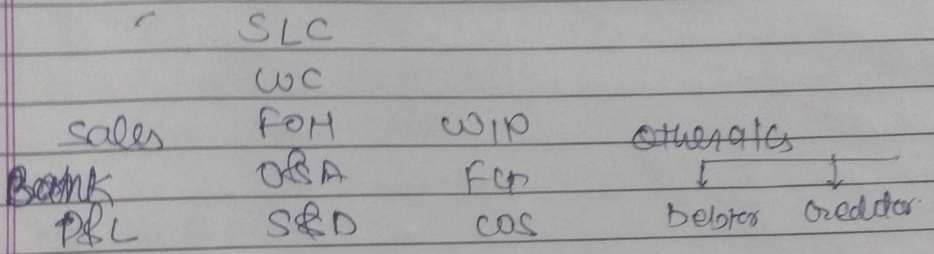 SLC
WC
Sales FOH WIP Other a/cs
Bank O&A FG
P&L S&D COS Debtors Creditor